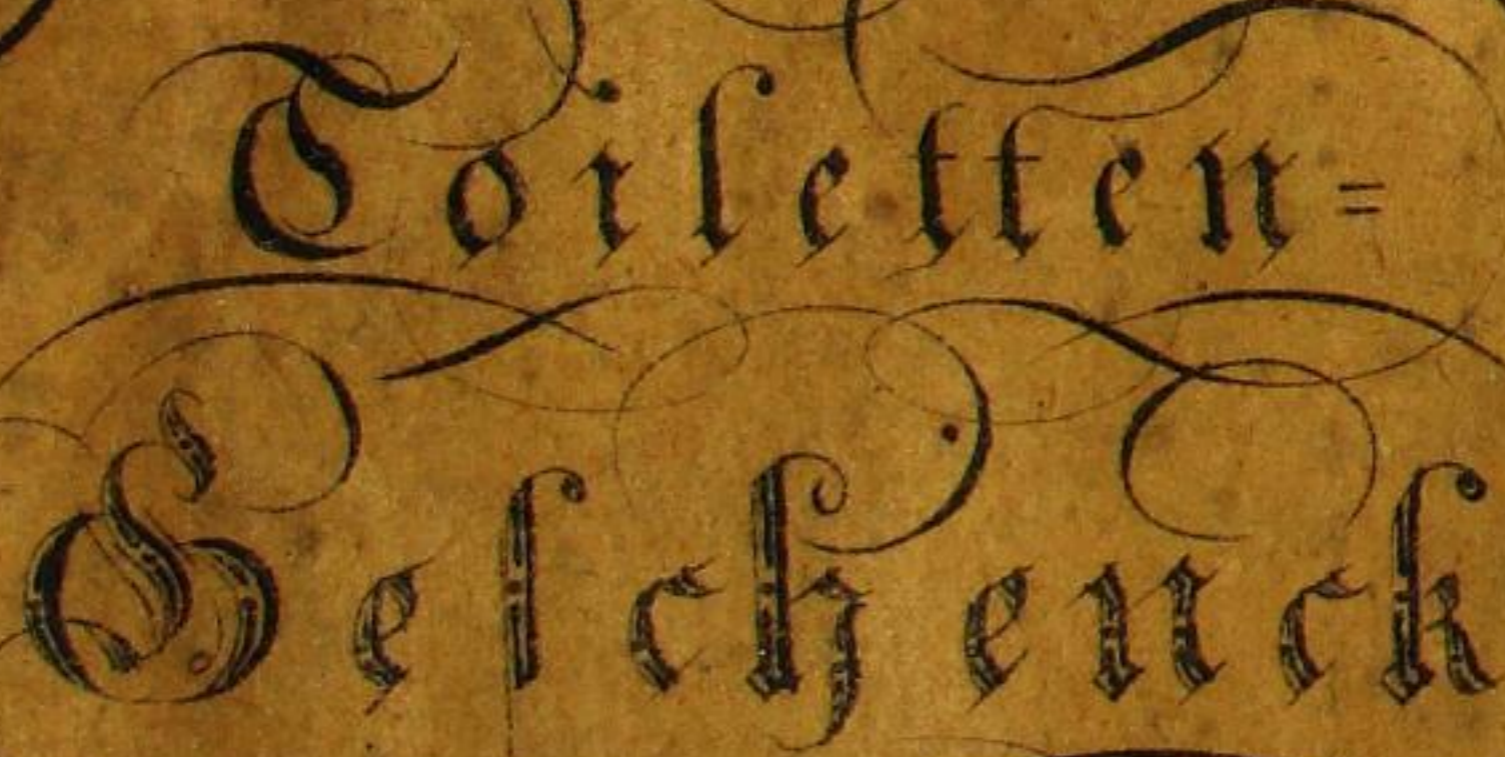 Toiletten=
Geschenck